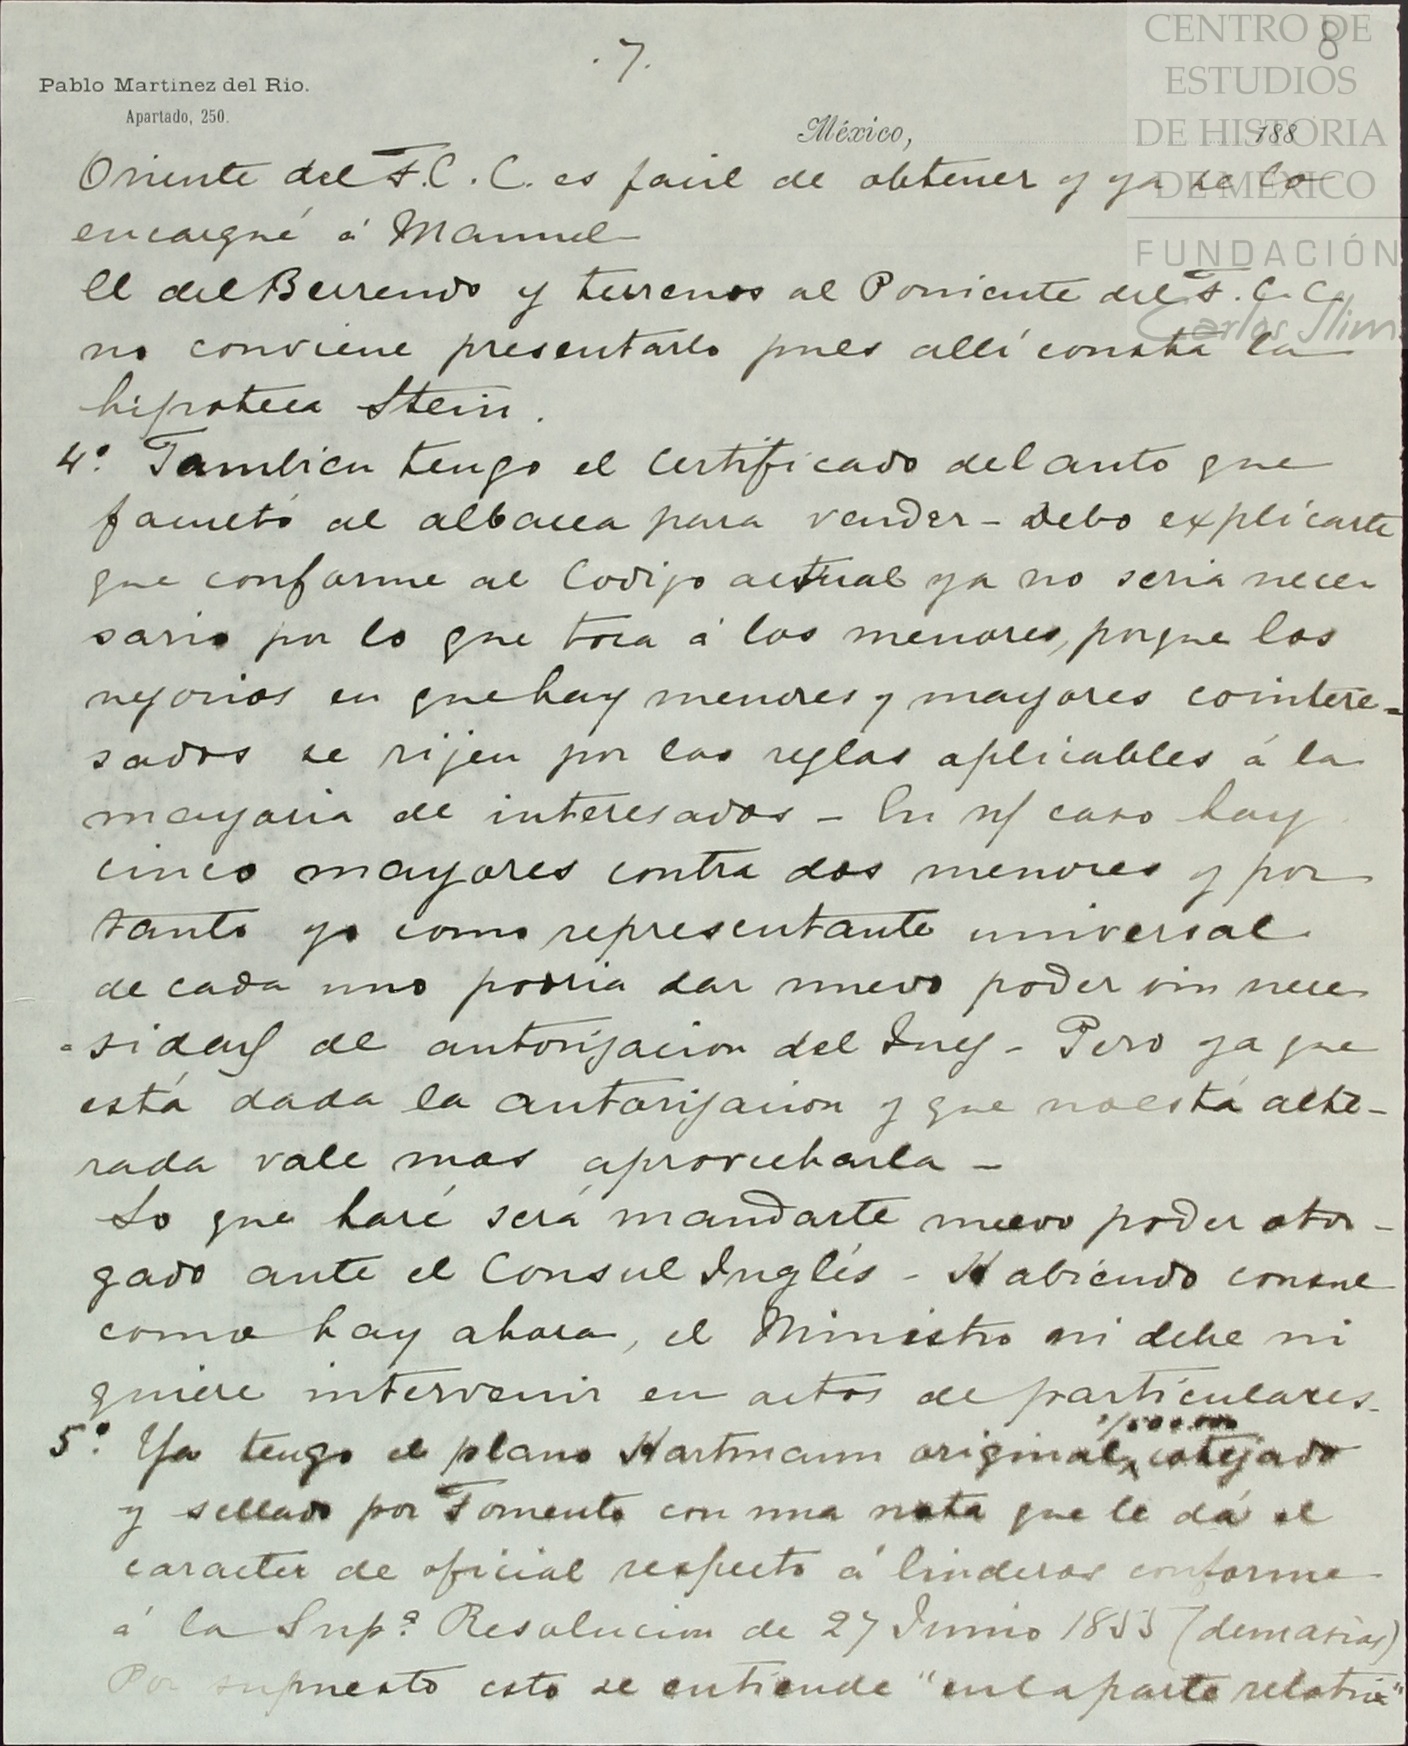 .7.
8
CENTRO DE
ESTUDIOS
DE HISTORIA
DE MÉXICO
FUNDACIÓN
Carlos Slim
Pablo Martinez del Rio.
Apartado, 250.
México, 188
Oriente del F.C.C. es facil de obtener y ya se lo
encargué á Manuel
El del Berrendo y terrenos al Poniente del F.C.C.
no conviene presentarlo pues allí consta la
hipoteca Stein.
4º. Tambien tengo el certificado del auto que
facultó al albacea para vender - Debo explicarte
que conforme al Codigo actual ya no seria nece
sario por lo que toca á los menores, porque los
negocios en que hay menores y mayores cointere=
sados se rijen por las reglas aplicables á la
mayoria de interesados - En n/ caso hay
cinco mayores contra dos menores y por
tanto yo como representante universal
de cada uno podria dar nuevo poder sin nece
sidad de autorizacion del Juez - Pero ya que
está dada la autorizacion y que no está alte-
rada vale mas aprovecharla -
Lo que haré será mandarte nuevo poder otor-
gado ante el Consul Inglés - Habiendo consul
como hay ahora, el Ministro ni debe ni
quiere intervenir en actos de particulares.
5º. Ya tengo el plano Hartmann original, 1/500.000 cotejado
y sellado por Fomento con una nota que le dá el
caracter de oficial respecto á linderos conforme
á la Supª. Resolucion de 27 Junio 1855 (demasias)
Por supuesto esto se entiende "en la parte relativa"